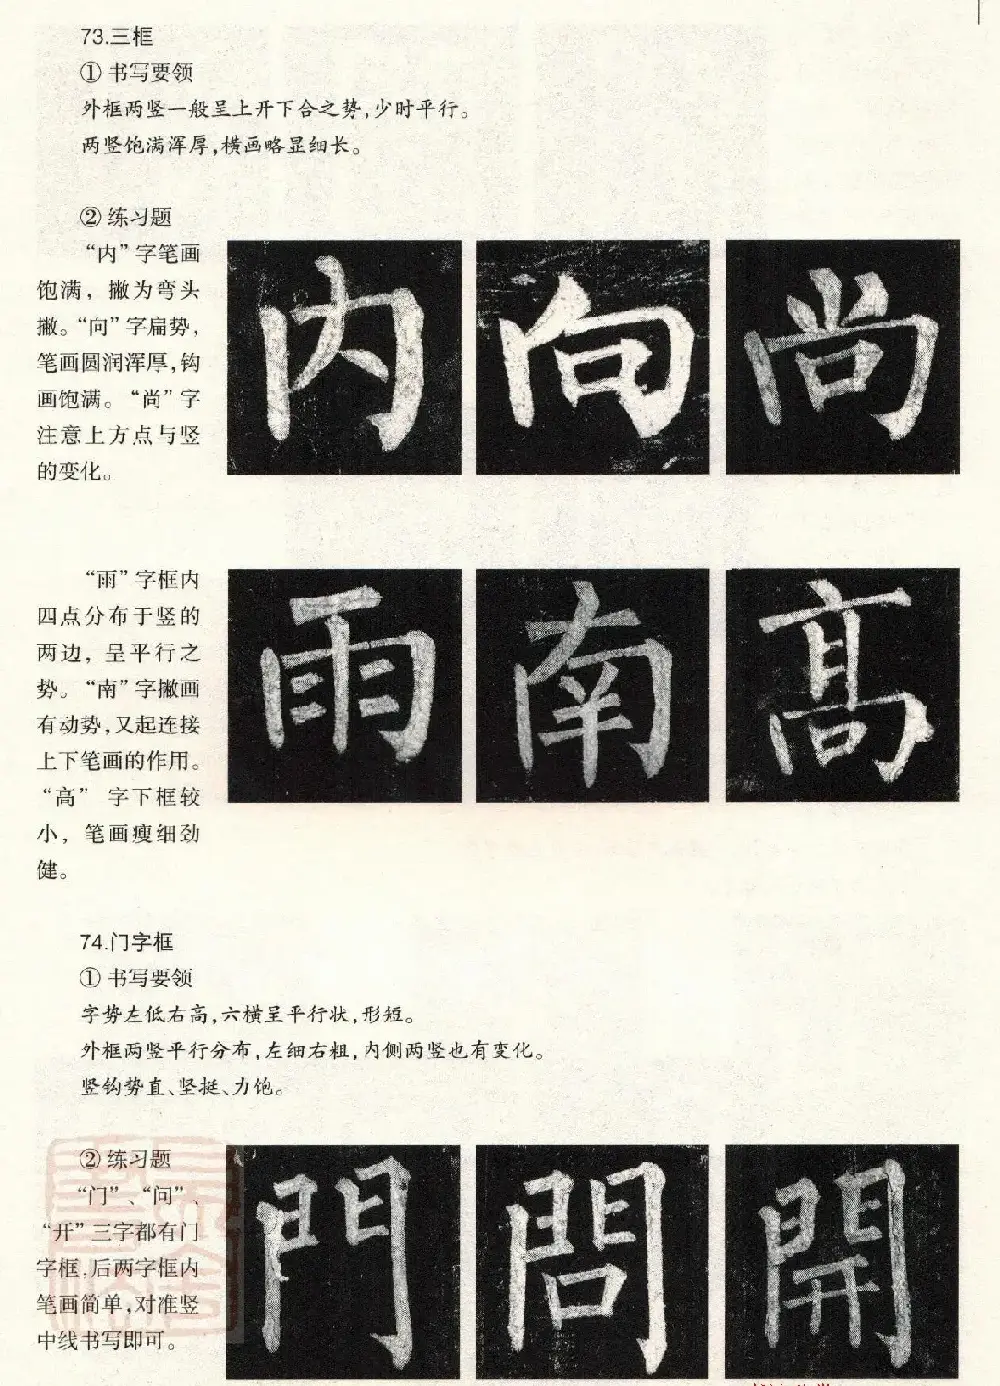 73.三框
① 书写要领
外框两竖一般呈上开下合之势,少时平行。
两竖饱满浑厚,横画略显细长。
② 练习题
“内”字笔画
饱满，撇为弯头
撇。“向”字扁势,
笔画圆润浑厚,钩
画饱满。“尚”字
注意上方点与竖
的变化。
内 向 尚
“雨”字框内
四点分布于竖的
两边，呈平行之
势。“南”字撇画
有动势,又起连接
上下笔画的作用。
“高” 字下框较
小，笔画瘦细劲
健。
雨 南 高
74.门字框
① 书写要领
字势左低右高,六横呈平行状,形短。
外框两竖平行分布,左细右粗,内侧两竖也有变化。
竖钩势直、坚挺、力饱。
② 练习题
“门”、“问”、
“开”三字都有门
字框,后两字框内
笔画简单,对准竖
中线书写即可。
門 問 開